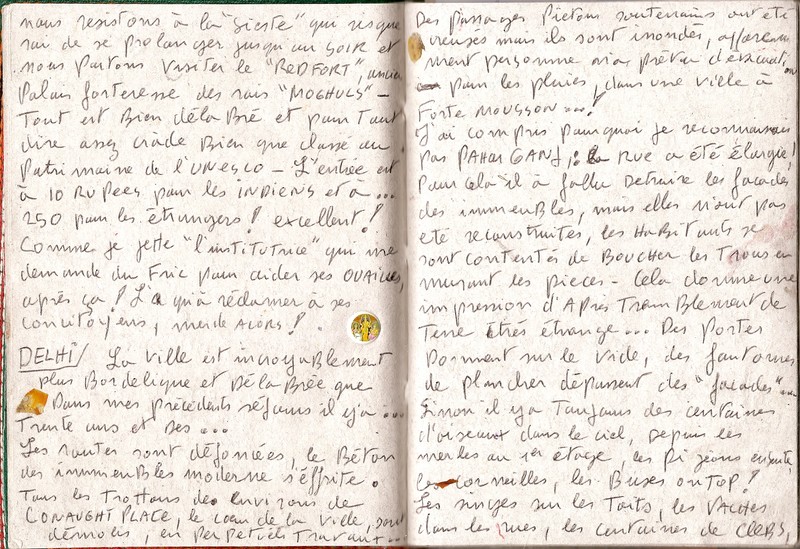 nous resistons à la "sieste" qui risque
rai de se prolonger jusqu'au SOIR et
nous partons visiter le "RED FORT", ancien
Palais forteresse des rois "MOGHULS" -
Tout est Bien délaBré et pour Tant
dire assez crade Bien que classé au
Patrimoine de l'UNESCO - L'entrée est
à 10 RUPees pour les INDIENS et à ...
250 pour les étrangers ! excellent !
Comme je jette "l'institutrice" qui me
demande du Fric pour aider ses OUAILLES,
après ça ! L'a qu'à réclamer à ses
concitoyens, merde ALORS !
DELHI / La ville est incroyaBlement
plus Bordelique et DélaBrée que
Dans mes précédents séjours il y a ...
Trente ans et Des ...
Les routes sont défoncées, le Béton
des immeuBles moderne s'éffrite.
Tous les Trottoirs des environs de
CONAUGHT PLACE, le cœur de la ville, sont
démolis, en perpetuels Travaux ...
Des passages Pietons souterrains ont été
creusés mais ils sont inondés, apparem
ment personne n'a prévu d'évacuation
pour les pluies, dans une ville à
Forte MOUSSON ... !
J'ai compris pourquoi je reconnaissais
pas PAHAR GANJ : la RUE a été élargie !
Pour cela il à fallu Detruire les façades
des immeuBles, mais elles n'ont pas
été reconstruites, les HaBitants se
sont contentés de BOUCHER les Trous en
murant les pieces - Cela donne une
impression d'APrès TremBlement de
Terre très étrange ... Des Portes
Donnent sur le vide, des fantomes
de plancher dépassent des "façades" ...
Sinon il y a Toujours des centaines
d'oiseaux dans le ciel, Depuis les
merles au 1er étage, les Pigeons ensuite,
les corneilles, les Buses on TOP !
Les singes sur les Toits, les VACHES
dans les rues, les centaines de CLEBS,